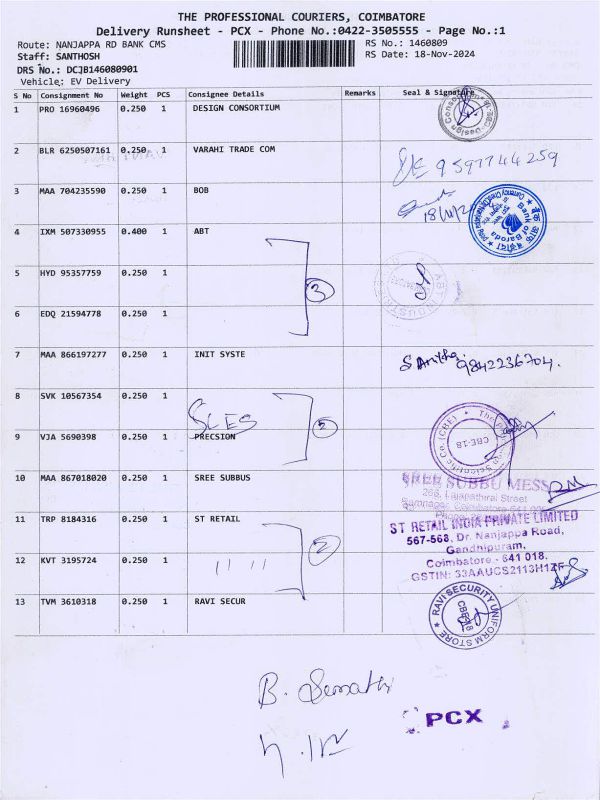 THE PROFESSIONAL COURIERS, COIMBATORE
Delivery Runsheet - PCX - Phone No.:0422-3505555 - Page No.:1
Route: NANJAPPA RD BANK CMS
RS No.: 1460809
Staff: SANTHOSH
RS Date: 18-Nov-2024
DRS No.: DCJB146080901
Vehicle: EV Delivery
S No Consignment No Weight PCS Consignee Details Remarks Seal & Signature
1 PRO 16960496 0.250 1 DESIGN CONSORTIUM
2 BLR 6250507161 0.250 1 VARAHI TRADE COM
9597744259
3 MAA 704235590 0.250 1 BOB
Bank of Baroda
4 IXM 507330955 0.400 1 ABT
5 HYD 95357759 0.250 1
3
6 EDQ 21594778 0.250 1
7 MAA 866197277 0.250 1 INIT SYSTE
9842236704.
8 SVK 10567354 0.250 1
SCES
2
9 VJA 5690398 0.250 1 PRECSION
CBE-18
10 MAA 867018020 0.250 1 SREE SUBBUS
SREE SUBBU MESS
11 TRP 8184316 0.250 1 ST RETAIL
ST RETAIL INDIA PRIVATE LIMITED
567-568, Dr. Nanjappa Road,
Gandhipuram,
Coimbatore - 641 018.
GSTIN: 33AAUCS2113H1ZF
2
12 KVT 3195724 0.250 1
13 TVM 3610318 0.250 1 RAVI SECUR
RAVI SECURITY UNIFORM STORE
CBE-18
PCX